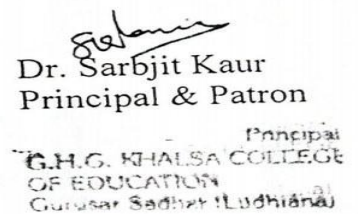 Dr. Sarbjit Kaur
Principal & Patron
Principal
G.H.G. KHALSA COLLEGE
OF EDUCATION
Gurusar Sadhar (Ludhiana)